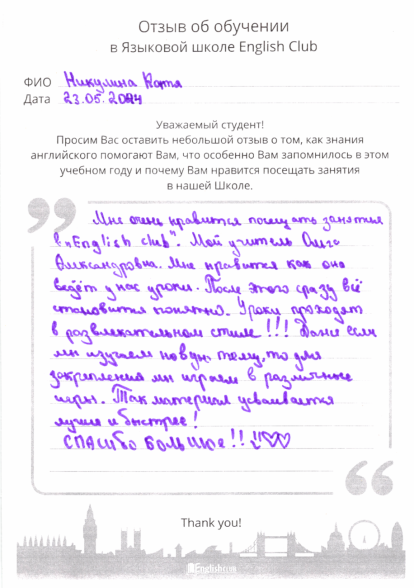 Отзыв об обучении
в Языковой школе English Club
ФИО Никулина Катя
Дата 23.05.2024
Уважаемый студент!
Просим Вас оставить небольшой отзыв о том, как знания
английского помогают Вам, что особенно Вам запомнилось в этом
учебном году и почему Вам нравится посещать занятия
в нашей Школе.
Мне очень нравится посещать занятия
в „English club". Мой учитель Ольга
Александровна. Мне нравится как она
ведёт у нас уроки. После этого сразу всё
становится понятно. Уроки проходят
в развлекательном стиле!!! Даже если
мы изучаем новую тему, то для
закрепления мы играем в различные
игры. Так материал усваивается
лучше и быстрее!
СПАСИБО БОЛЬШОЕ!!
Thank you!
English club